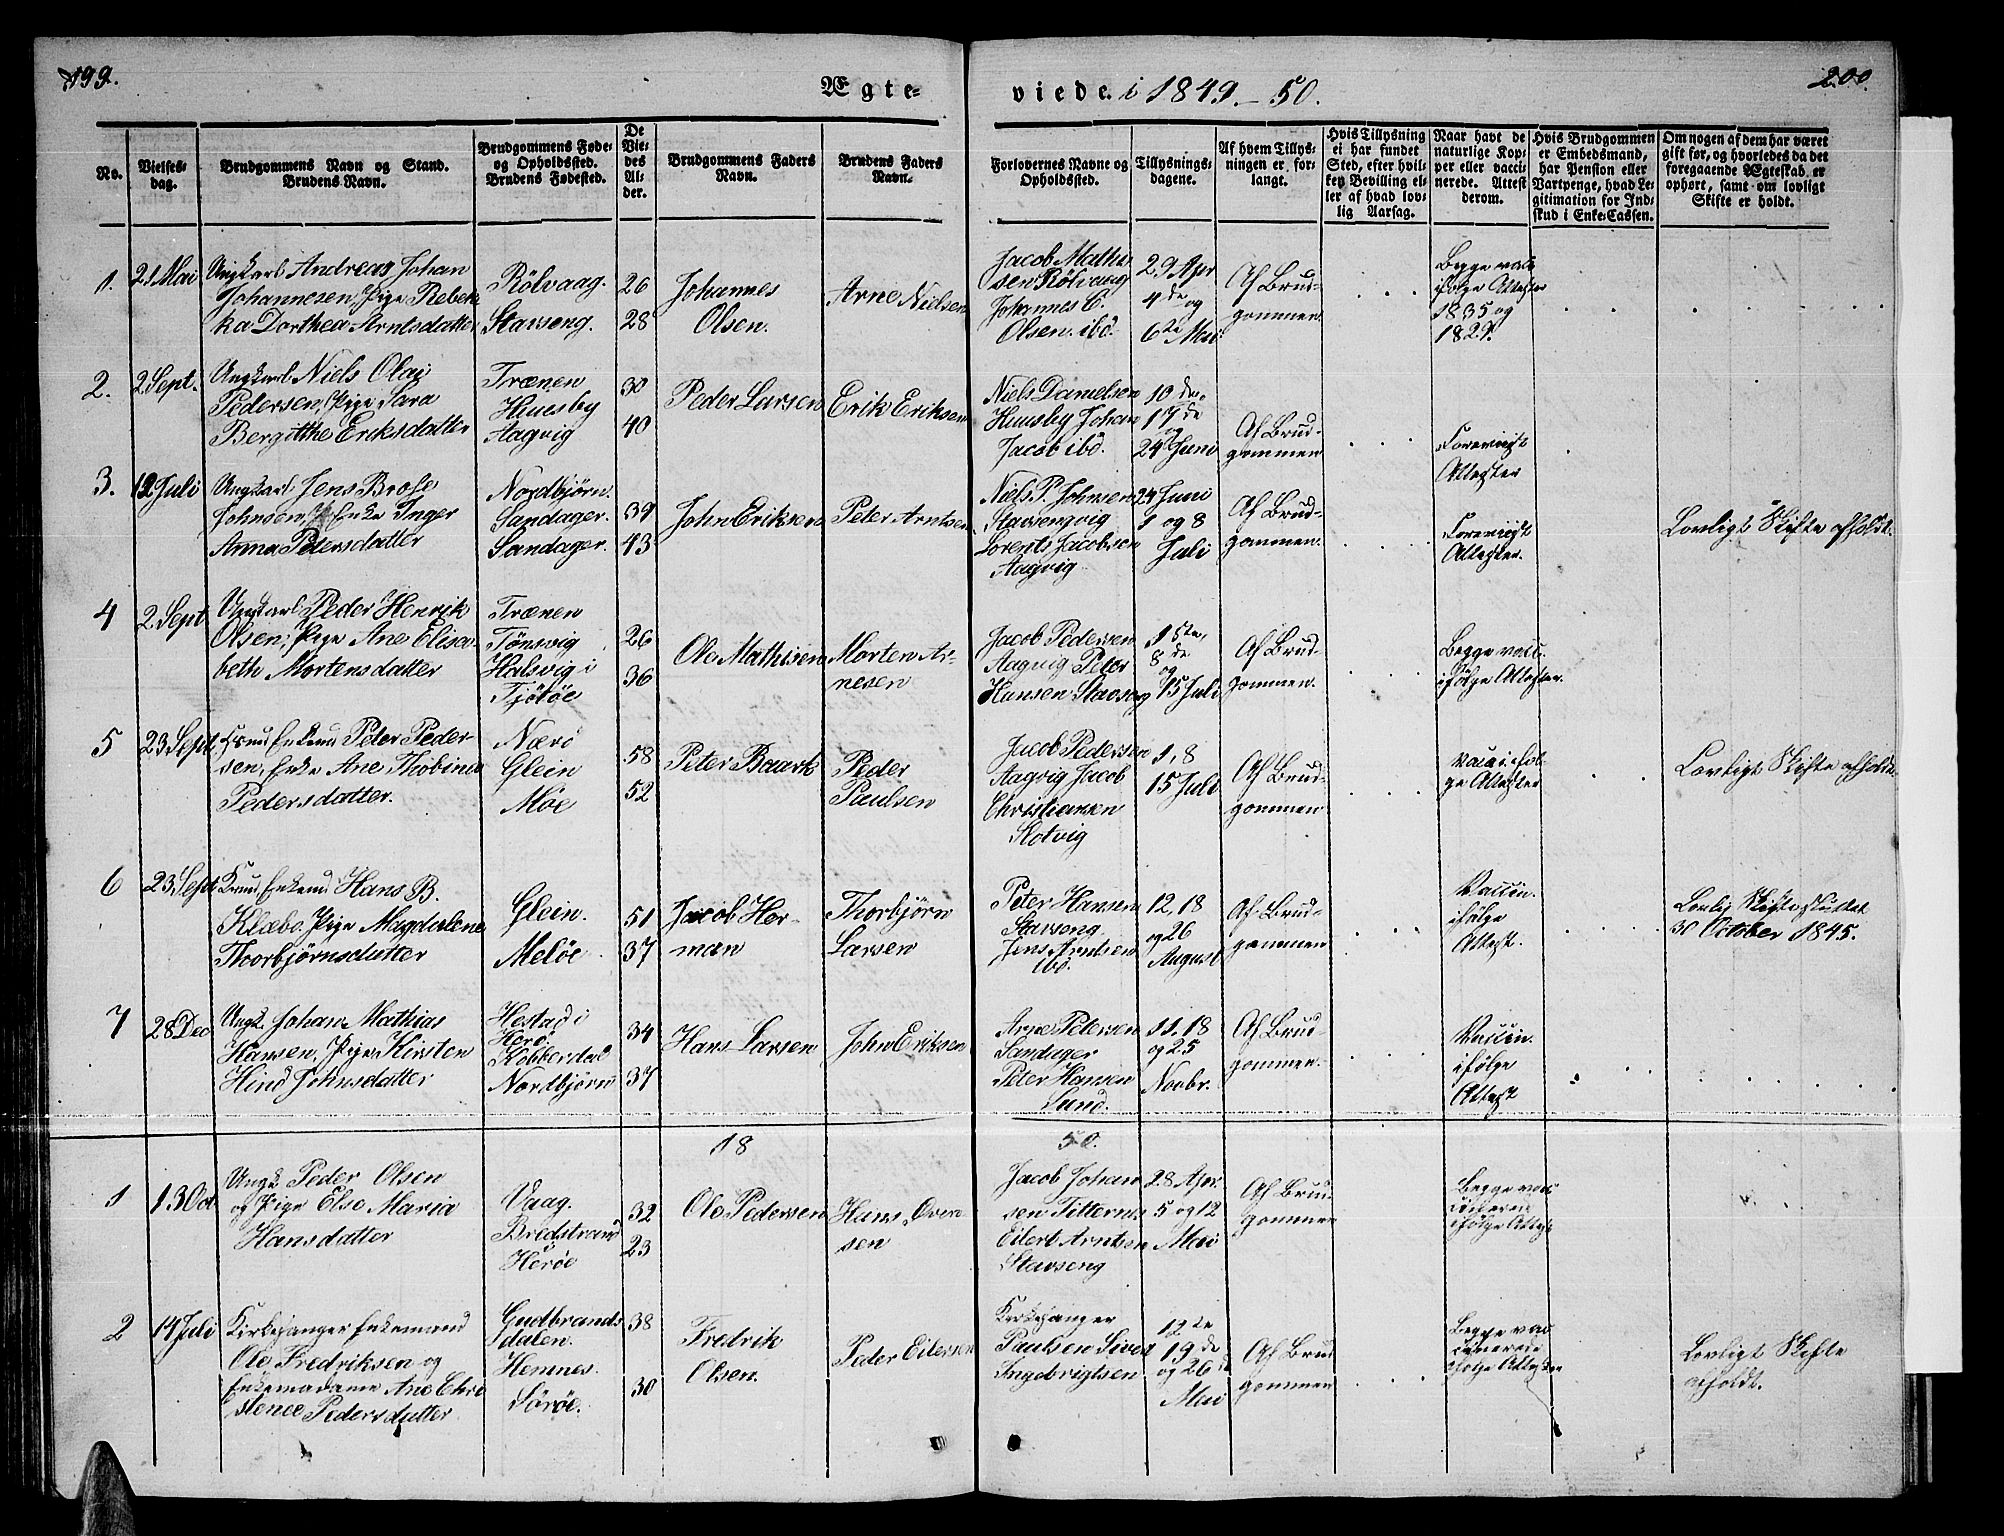 199.
Ægte-
viede i 1849.-50.
200.
No.
Vielses-
dag.
Brudgommens Navn og Stand.
Brudens Navn.
Brudgommens Føde-
og Opholdssted.
Brudens Fødested.
De
Vie-
des
Al-
der.
Brudgommens Faders
Navn.
Brudens Faders
Navn.
Forlovernes Navne og
Opholdssted.
Tillysnings-
dagene.
Af hvem Tillys-
ningen er for-
langt.
Hvis Tillysning
ei har fundet
Sted, efter hvil-
ken Bevilling el-
ler af hvad lov-
lig Aarsag.
Naar havt de
naturlige Kop-
per eller vacci-
nerede. Attest
derom.
Hvis Brudgommen
er Embedsmand,
har Pension eller
Vartpenge, hvad Le-
gitimation for Ind-
skud i Enke-Cassen.
Om nogen af dem har været
gift før, og hvorledes da det
foregaaende Ægteskab er
ophørt, samt om lovligt
Skifte er holdt.
1.
21 Mai
Ungkarl Andreas Johan
Johannesen, Pige Rebek
ka Dorthea Arntsdatter
Rölvaag.
Stavseng.
26
28
Johannes
Olsen.
Arne Nielsen
Jacob Mathi
sen Rölvaag
Johannes C.
Olsen ibd.
29 Apr
4de og
6te Mai
Af Brud-
gommen
Begge vacc
ifølge Attester
1835 og
1829.
2.
2 Sept.
Ungkarl Niels Olai
Pedersen, Pige Sara
Bergitthe Eriksdatter
Trænen
Huusby
Aagvig
30
40
Peder Larsen
Erik Eriksen
Niels Danielsen
Huusby Johan
Jacob ibd.
10 de,
17 de
og
24 Juni
Af Brud-
gommen
Foreviist
Attester
3.
12 Juli
Ungkarl Jens Brose
Johnsen, Enke Inger
Anna Petersdatter
Nordbjörn.
Sandager.
Sandager.
39
43
John Eriksen
Peter Arntsen
Niels P. Johnsen
Stavsengvig
Lorents Jacobsen
Aagvig
24 Juni
1 og 8
Juli
Af Brud-
gommen.
Foreviist
Attester.
Lovligt Skifte afholdt.
4
2 Sept
Ungkarl Peder Henrik
Olsen, Pige Ane Elisa-
beth Mortensdatter
Trænen
Tönsvig
Halsvig i
Tjötöe
26
36
Ole Mathisen
Morten Ar-
nesen
Jacob Pedersen
Aagvig Peter
Hansen Stavseng
1ste,
8 de
og
15 Juli
Af Brud-
gommen.
Begge vacc.
ifølge Attester.
5
23 Sept.
Enkemd Peter Peder-
sen, Enke Ane Thobine
Pedersdatter.
Nærö
Glein
Möe
58
52
Peter Baark
Peder
Paulsen
Jacob Pedersen
Aagvig Jacob
Christiansen
Slotvig
1, 8
15 Juli
Af Brud-
gommen
ge Attester
Lovligt Skifte afholdt
6
23 Sept
Enkemd Hans B.
Klæbo, Pige Magdalene
Thorbjörnsdatter
Glein.
Melöe
51
37
Jacob Her-
man
Thorbjörn
Larsen
Peter Hansen
Stavseng
Jens Arntsen
ibd.
12, 18
og 26
August
Af Brud-
gommen
Vaccin.
ifølge
Attest.
Lovlig Skifte sluttet
30 October 1845.
7
28 Dec
Ungk. Johan Mathias
Hansen, Pige Kirsten
Hind Johnsdatter
Hestad i
Herö
Kobberdal
Nordbjörn
34
37
Hans Larsen
John Eriksen
Arne Petersen
Sandager
Peter Hansen
Sund.
11, 18
og 25
Novbr.
Af Brud-
gommen.
Vaccin.
ifølge
Attest
18
50.
1
13 Oct
Ungk Peder Olsen
og Pige Else Maria
Hansdatter
Vaag.
Bredstrand
Heröe
32
23
Ole Pedersen
Hans Over
sen
Jacob Johan
sen Titternes
Eilert Arntsen
Stavseng
28 Apr.
5 og 12
Mai
Af Brud
gommen
Begge vac
cinerede
ifølge Attester
2
14 Juli
Kirkesanger Enkemand
Ole Fredriksen og
Enkemadame Ane Chri
stence Pedersdatter
Gudbrands
dalen.
Hemnes.
Söröe.
38
30
Fredrik
Olsen.
Peder Eilersen
Kirkesanger
Paulsen Sivert
Ingebrigtsen
12te
19 de
og 26 de
Mai
Af Brud
gommen
Begge vac
cinerede
ifølge Attester
Lovligt Skifte
afholdt.